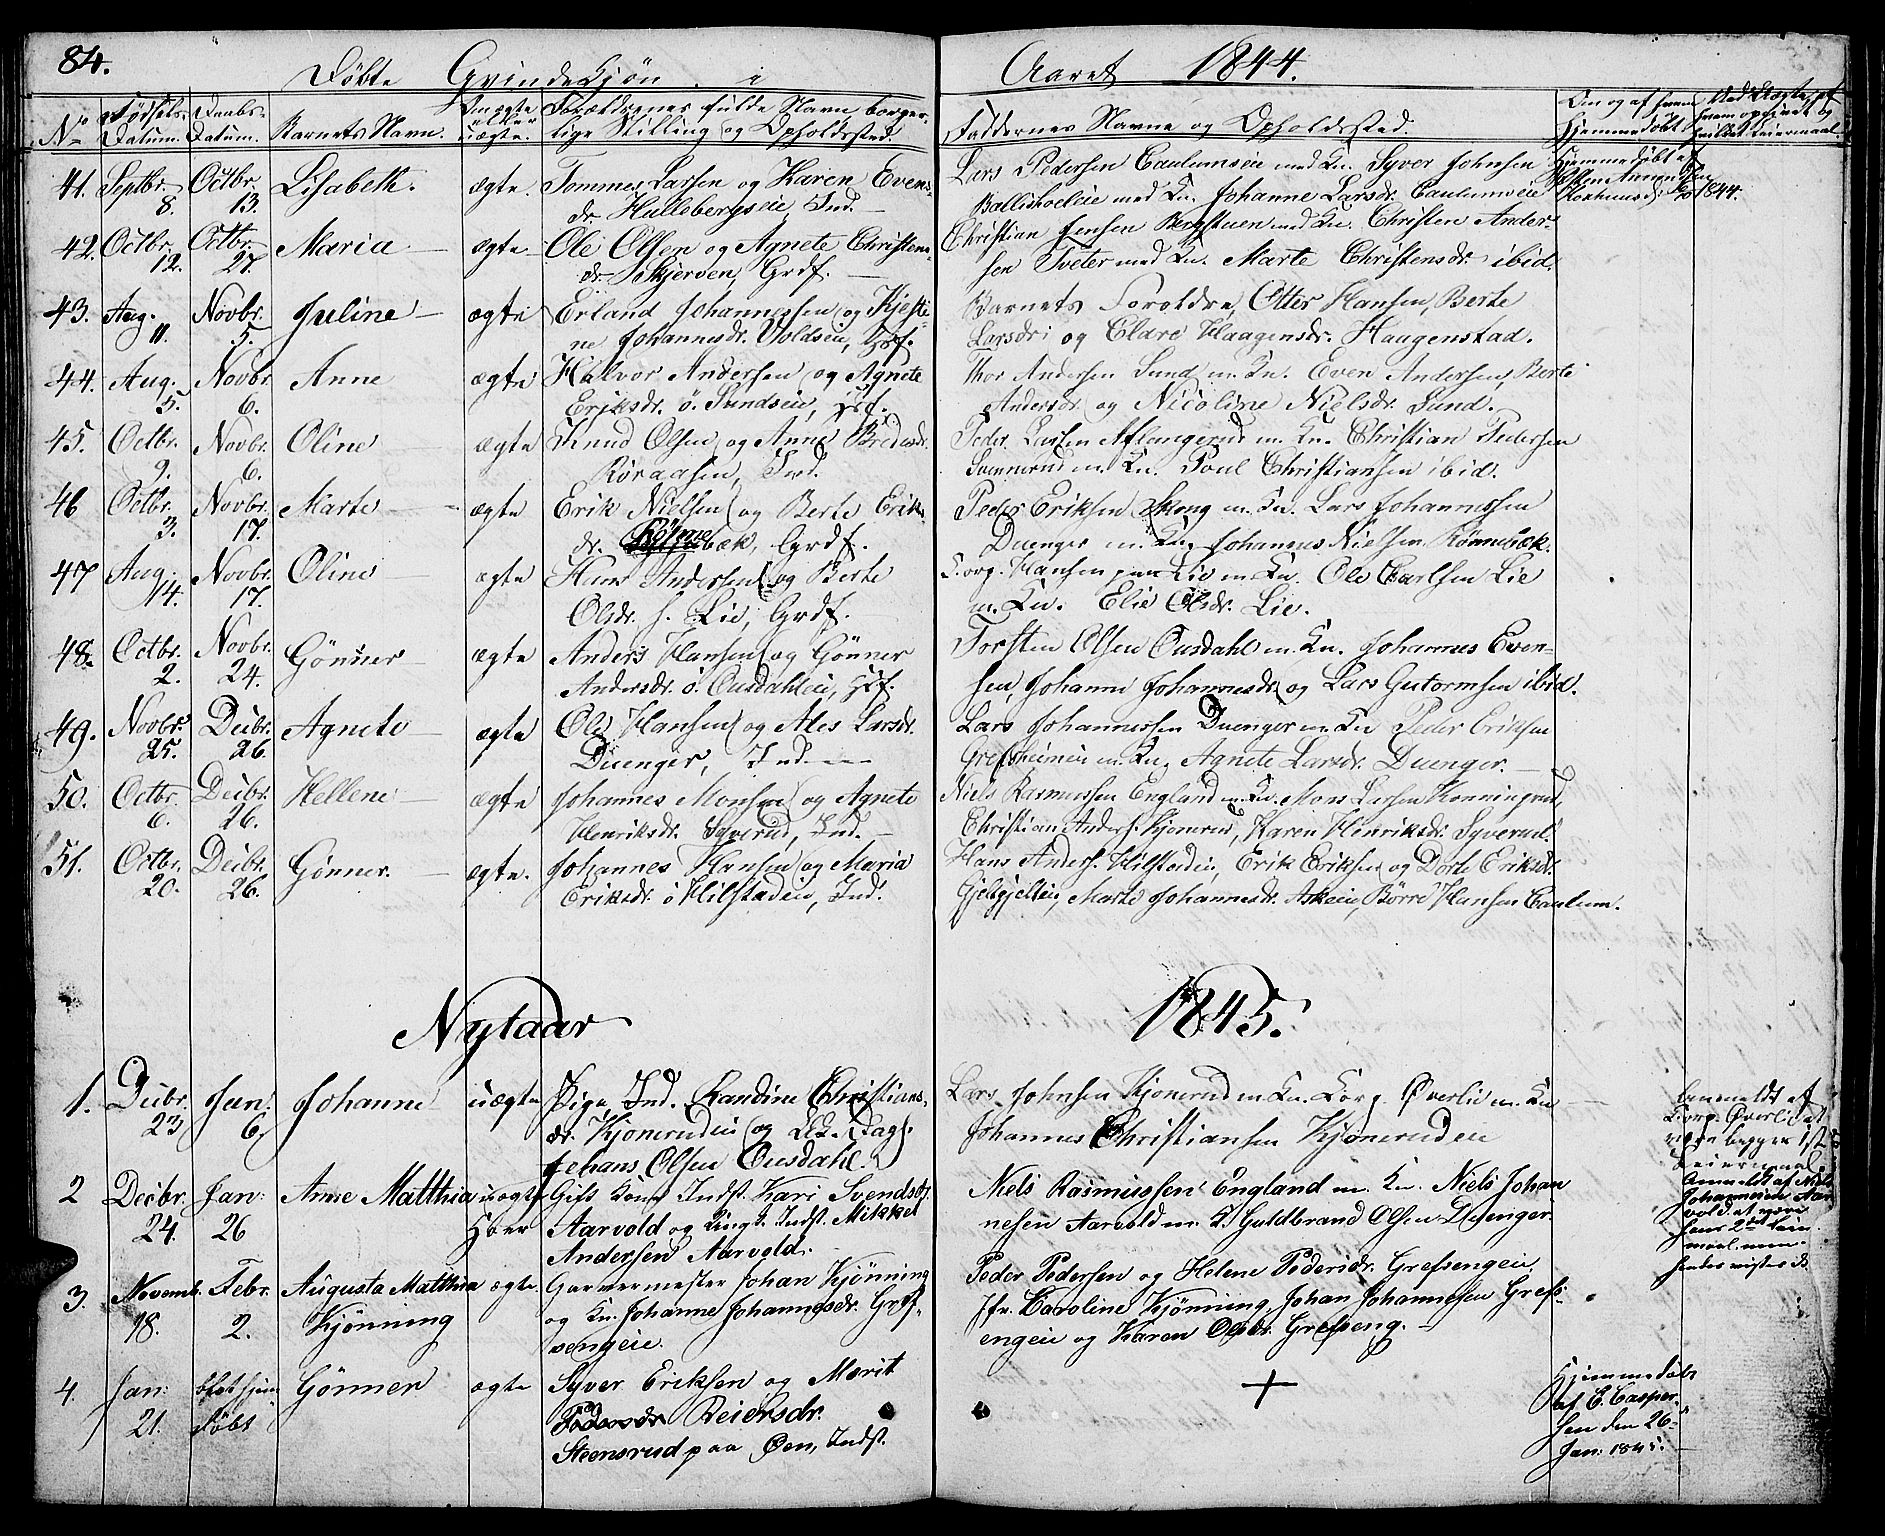 84.
Døbte Qvindekjøn i Aaret 1844.
No Fødsels-Datum. Daabs-Datum. Barnets Navn. Om ægte eller uægte. Forældrenes fulde Navn, borger-
lige Stilling og Opholdssted. Faddernes Navne og Opholdssted. Om og af hvem Hjemmedøbt
41. Septbr. 8. Octbr. 13. Lisabeth. ægte. Tommes Larsen og Karen Evens-
dr. Hulleberyseie, Ind.
Lars Pedersen Caulumseie med Kn. Syver Johnsen
med Kn. Johanne Larsdr. Caulumseie
Hjemmedøbt af
1844.
42. Octbr. 12. Octbr. 27. Maria ægte Ole Olsen og Agnete Christens-
dr. Skjerven, Grdf.
Christian Jensen Bergstuen med Kn. Christen Ander-
sen Tveter med Kn. Marte Christensdr. ibid.
43. Aug. 11. Novbr. 5. Juline ægte Erland Johannessen og Kjesti-
ne Johannesdr. Voldseie, Hsf.
Barnets Foreldre, Otter Hansen, Berte
Larsdr. og Eldre Haagensdr. Haugenstad.
44. Aug. 5. Novbr. 6. Anne ægte Halvor Andersen og Agnete
Eriksdr. ö. Sundseie, Hsf.
Thor Andersen Sund m. Kn. Even Andersen, Berte
Andersdr. og Nicoline Nielsdr. Sund.
45. Octbr. 9. Novbr. 6. Oline ægte Knud Olsen og Anne Bredesdr.
Røraasen, Ind.
Peder Larsen Aflangerud m. Kn. Christian Pedersen
m. Kn. Poul Christiansen ibid.
46 Octbr. 3. Novbr. 17. Marte ægte Erik Nielsen og Berte Eriks-
dr. Rönnebæk, Grdf.
Peder Eriksen Skong m. Kn. Lars Johannessen
Duenger m. Kn. Johannes Nielsen Rønnebæk.
47 Aug. 14. Novbr. 17. Oline ægte Hans Andersen og Berte
Olsdr. s. Lie, Grdf.
Corp. Hansen Lie m. Kn. Ole Carlsen Lie
m. Kn. Elie Olsdr. Lie.
48. Octbr. 2. Novbr. 24. Gönner ægte Anders Hansen og Gönner
Andersdr. ö. Ousdahleie, Hsf.
Torsten Olsen Ousdahl m. Kn. Johannes Even-
sen, Johanne Johannesdr. og Lars Gutormsen ibid.
49. Novbr. 25. Decbr. 26. Agnete ægte Ole Hansen og Ales Larsdr.
Duenger, Ind.
Lars Johannessen Duenger m. Kn. Peder Eriksen
Grefsheimeie m. Kn. Agnete Larsdr. Duenger.
50. Octbr. 6. Decbr. 26. Hellene ægte Johannes Monsen og Agnete
Henriksdr. Syverud, Ind.
Niels Rasmussen England m. Kn. Mons Larsen Konningrud,
Christian Anders. Kjonerud, Karen Hinriksdr. Syverud.
51. Octbr. 20. Decbr. 26. Gönner. ægte. Johannes Hansen og Maria
Eriksdr. ö Hilstadeie, Ind.
Hans Anders. Hilstadeie, Erik Eriksen og Dorte Eriksdr.
Gjeltgjelteie, Marte Johannesdr. Askeie, Börre Hansen Caulum.
Nytaar 1845.
1. Decbr. 23 Jan. 6. Johanne uægte Pige Ind. Randine Christians-
dr. Kjoneruden og
Johans Olsen Ousdahl.
Lars Johnsen Kjonerud m. Kn. Corp. Øverlie m. Kn
Johannes Christiansen Kjøneruden
Anmeldt af
Corp. Øverlie at
være begges 1ste
Leiermaal.
2 Decbr. 24. Jan: 26 Anne Matthia uægte Hoer Gift Kone Indst. Kari Svendsd.
Aarvold og Ungk. Indst. Mikkel
Andersen Aarvold.
Niels Rasmussen England m. Kn. Niels Johan
nesen Aarvold m. K. Guldbrand Olsen Duenger.
Anmeldt af Niels
Johannesen Aar
vold at være
hans 2det Leier
maal, men
hendes vistes ei
3. Novemb. 18. Febr. 2. Augusta Matthia Kjönning ægte. Garvermester Johan Kjönning
og Kn. Johanne Johannesdr. Gref-
sengeie.
Peder Pedersen og Helene Pedersdr. Grefsengeie,
Jfr. Caroline Kjönning, Johan Johannesen Grefs-
engeie og Karen Olsdr. Grefseng.
4. Jan: 21. blot hjemdöbt Gönner ægte Syver Eriksen og Marit
Pedersdr. Reiersdr.
Steensrud paa Öen, Indst.
+
Hjemmedøbt
af C. Casper-
sen den 26
Jan: 1845.